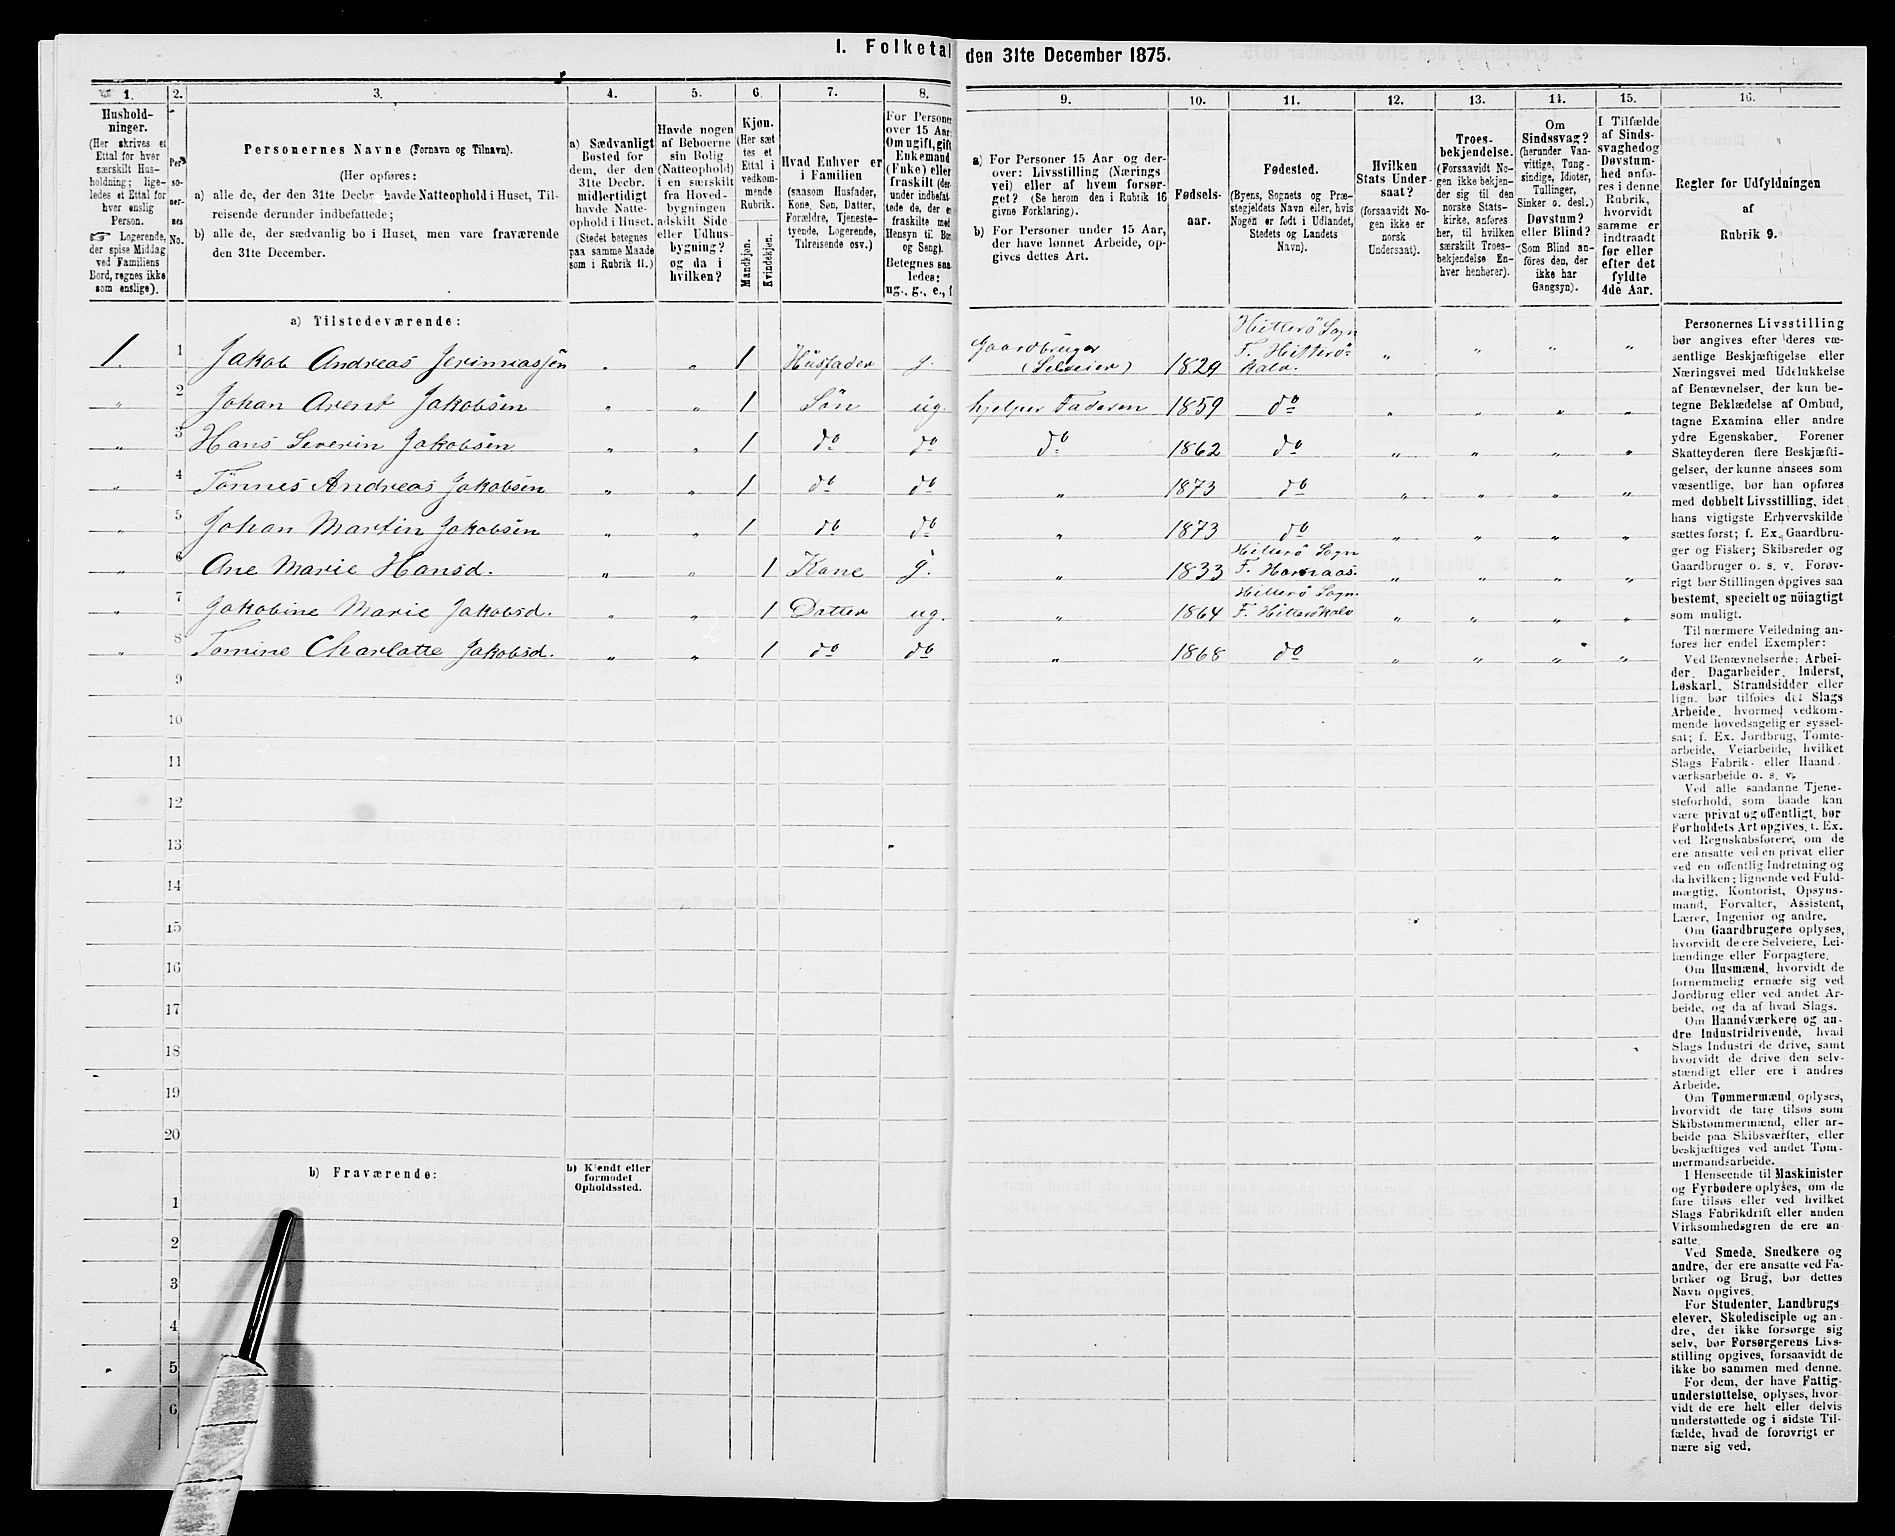 I. Folketal den 31te December 1875.
1. 2. 3. 4. 5. 6. 7. 8. 9. 10. 11. 12. 13. 14. 15. 16.
Hushold-
ninger.
(Her skrives et
Ettal for hver
særskilt Hus-
holdning; lige-
ledes et Ettal for
hver enslig
Person.
☞ Logerende,
der spise Middag
ved Familiens
Bord, regnes ikke
som enslige).
Per-
so-
ner-
nes
No.
Personernes Navne (Fornavn og Tilnavn).
(Her opføres:
a) alle de, der den 31te Decbr. havde Natteophold i Huset, Til-
reisende derunder indbefattede;
b) alle de, der sædvanlig bo i Huset, men vare fraværende
den 31te December.
a) Sædvanligt
Bosted for
dem, der den
31te Decbr.
midlertidigt
havde Natte-
ophold i Huset.
(Stedet betegnes
paa samme Maade
som i Rubrik 11.)
Havde nogen
af Beboerne
sin Bolig
(Natteophold)
i en særskilt
fra Hoved-
bygningen
adskilt Side-
eller Udhus-
bygning?
og da i
hvilken?
Kjøn.
(Her sæt-
tes et
Ettal i
vedkom-
mende
Rubrik.
Mandkjøn.
Kvindekjøn.
Hvad Enhver er
i Familien
(saasom Husfader,
Kone, Søn, Datter,
Forældre, Tjeneste-
tyende, Logerende,
Tilreisende osv.)
For Personer
over 15 Aar:
Om ugift, gift,
Enkemand
(Enke) eller
fraskilt (der-
under indbefat-
tede de, der er
fraskilte med
Hensyn til Bord
og Seng).
Betegnes saa-
ledes:
ug., g., e., f.
a) For Personer 15 Aar og der-
over: Livsstilling (Nærings-
vei) eller af hvem forsør-
get? (Se herom den i Rubrik 16
givne Forklaring).
b) For Personer under 15 Aar,
der have lønnet Arbeide, op-
gives dettes Art.
Fødsels-
aar.
Fødested.
(Byens, Sognets og Præ-
stegjeldets Navn eller, hvis
Nogen er født i Udlandet,
Stedets og Landets
Navn).
Hvilken
Stats Under-
saat?
(forsaavidt No-
gen ikke er
norsk
Undersaat).
Troes-
bekjendelse.
(Forsaavidt No-
gen ikke bekjen-
der sig til den
norske Stats-
kirke, anføres
her, til hvilken
særskilt Troes-
bekjendelse En-
hver henhører).
Om
Sindssvag?
(herunder Van-
vittige, Tung-
sindige, Idioter,
Tullinger,
Sinker o. desl.)
Døvstum?
eller Blind?
(Som Blind an-
føres den, der
ikke har
Gangsyn).
I Tilfælde
af Sinds-
svaghed og
Døvstum-
hed anfø-
res i denne
Rubrik,
hvorvidt
samme er
indtraadt
før eller
efter det
fyldte
4de Aar.
Regler for Udfyldningen
af
Rubrik 9.
a) Tilstedeværende:
1. 1 Jakob Andreas Jerimiassen „ „ 1 Husfader g. Gaardbruger (Selveier) 1829 Hitterö Sogn F. Hitterö- kalv. „ „ „ „
„ 2 Johan Arent Jakobsen „ „ 1 Sön ug. hjelper Faderen 1859 do „ „ „ „
„ 3 Hans Severin Jakobsen „ „ 1 do do do 1862 do „ „ „ „
„ 4 Tönnes Andreas Jakobsen „ „ 1 do do „ 1873 do „ „ „ „
„ 5 Johan Martin Jakobsen „ „ 1 do do „ 1873 do „ „ „ „
„ 6 Ane Marie Hansd. „ „ 1 Kone g. „ 1833 Hitterö Sogn F. „ „ „ „
„ 7 Jakobine Marie Jakobsd. „ „ 1 Datter ug. „ 1864 Hitterö Sogn. F. Hitterökalv „ „ „ „
„ 8 Tomine Charlotte Jakobsd. „ „ 1 do do „ 1868 do „ „ „ „
9
10
11
12
13
14
15
16
17
18
19
20
b) Fraværende:
b) Kjendt eller
formodet
Opholdssted.
1
2
3
4
5
6
Personernes Livsstilling
bør angives efter deres væ-
sentlige Beskjæftigelse eller
Næringsvei med Udelukkelse
af Benævnelser, der kun be-
tegne Beklædelse af Ombud,
tagne Examina eller andre
ydre Egenskaber. Forener
Skatteyderen flere Beskjæfti-
gelser, der kunne ansees som
væsentlige, bør han opføres
med dobbelt Livsstilling, idet
hans vigtigste Erhvervskilde
sættes først; f. Ex. Gaardbru-
ger og Fisker; Skibsreder og
Gaardbruger o. s. v. Forøv-
rigt bør Stillingen opgives saa
bestemt, specielt og nöiagtigt
som muligt.
Til nærmere Veiledning an-
føres her endel Exempler:
Ved Benævnelserne: Arbei-
der, Dagarbeider, Inderst,
Løskarl, Strandsidder eller
lign. bør tilføies det Slags
Arbeide, hvormed vedkom-
mende hovedsagelig er syssel-
sat; f. Ex. Jordbrug, Tomte-
arbeide, Veiarbeide, hvilket
Slags Fabrik- eller Haand-
værksarbeide o. s. v.
Ved alle saadanne Tjene-
steforhold, som baade kan
være privat og offentligt, bør
Forholdets Art opgives, f. Ex.
ved Regnskabsførere, om de
ere ansatte ved en privat eller
ved en offentlig Indretning og
da hvilken; lignende ved Fuld-
mægtig, Kontorist, Opsyns-
mand, Forvalter, Assistent,
Lærer, Ingeniør og andre.
Om Gaardbrugere oplyses,
hvorvidt de ere Selveiere, Lei-
lændinge eller Forpagtere.
Om Husmænd, hvorvidt de
fornemmelig ernære sig ved
Jordbrug eller ved andet Ar-
beide, og da af hvad Slags.
Om Haandværkere og an-
dre Industridrivende, hvad
Slags Industri de drive, samt
hvorvidt de drive den selv-
stændigt eller ere i andres
Arbeide.
Om Tømmermænd oplyses,
hvorvidt de fare tilsøs som
Skibstømmermænd, eller ar-
beide paa Skibsværfter, eller
beskjæftiges ved andet Tøm-
mermandsarbeide.
I Henseende til Maskinister
og Fyrbødere oplyses, om de
fare tilsøs eller ved hvilket
Slags Fabrikdrift eller anden
Virksomhedsgren de ere an-
satte.
Ved Smede, Snedkere og
andre, der ere ansatte ved Fa-
briker og Brug, bør dettes
Navn opgives.
For Studenter, Landbrugs-
elever, Skoledisciple og an-
dre, der ikke forsørge sig
selv, bør Forsørgerens Livs-
stilling opgives, forsaavidt de
ikke bo sammen med denne.
For dem, der have Fattig-
understøttelse, oplyses, hvor-
vidt de ere helt eller delvis
understøttede og i sidste Til-
fælde, hvad de forøvrigt er-
nære sig ved.